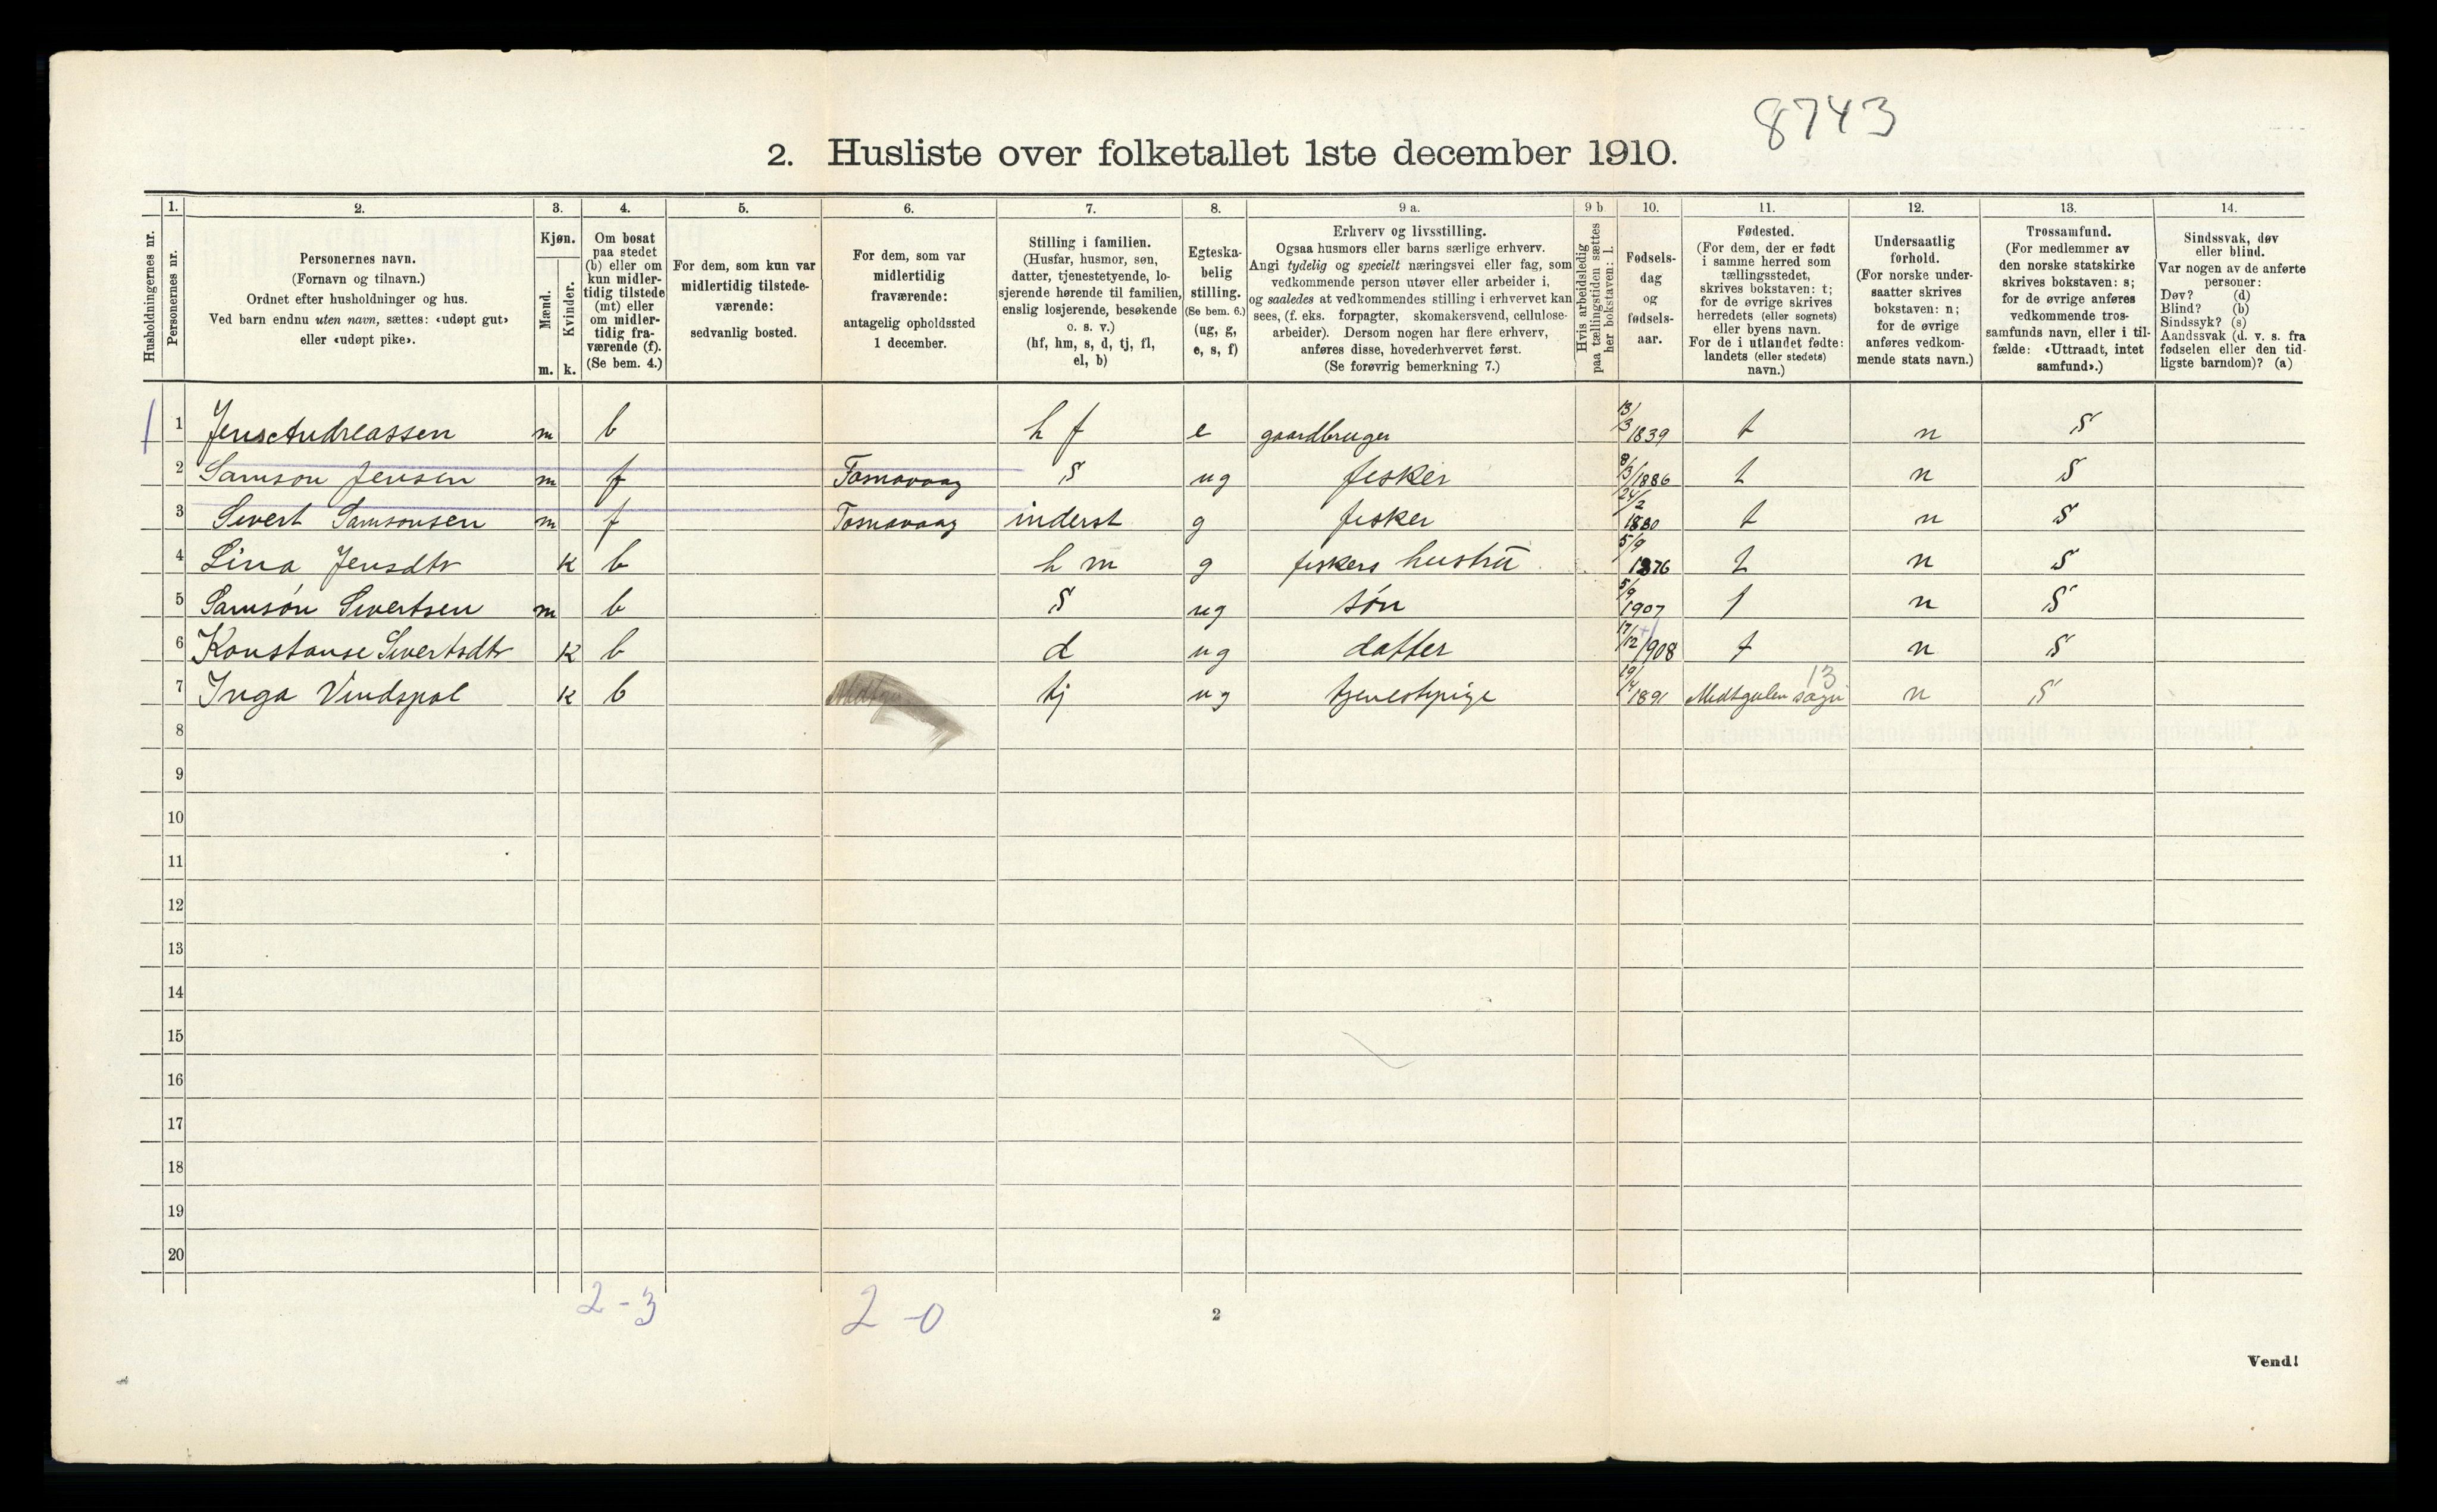 8743
2. Husliste over folketallet 1ste december 1910.
Husholdningernes nr.
1.
Personernes nr.
2.
Personernes navn.
(Fornavn og tilnavn.)
Ordnet efter husholdninger og hus.
Ved barn endnu uten navn, sættes: «udøpt gut»
eller «udøpt pike».
3.
Kjøn.
Mænd.
m.
Kvinder.
k.
4.
Om bosat
paa stedet
(b) eller om
kun midler-
tidig tilstede
(mt) eller
om midler-
tidig fra-
værende (f).
(Se bem. 4.)
5.
For dem, som kun var
midlertidig tilstede-
værende:
sedvanlig bosted.
6.
For dem, som var
midlertidig
fraværende:
antagelig opholdssted
1 december.
7.
Stilling i familien.
(Husfar, husmor, søn,
datter, tjenestetyende, lo-
sjerende hørende til familien,
enslig losjerende, besøkende
o. s. v.)
(hf, hm, s, d, tj, fl,
el, b)
8.
Egteska-
belig
stilling.
(Se bem. 6.)
(ug, g,
e, s, f)
9 a.
Erhverv og livsstilling.
Ogsaa husmors eller barns særlige erhverv.
Angi tydelig og specielt næringsvei eller fag, som
vedkommende person utøver eller arbeider i,
og saaledes at vedkommendes stilling i erhvervet kan
sees, (f. eks. forpagter, skomakersvend, cellulose-
arbeider). Dersom nogen har flere erhverv,
anføres disse, hovederhvervet først.
(Se forøvrig bemerkning 7.)
9 b
Hvis arbeidsledig
paa tællingstiden sættes
her bokstaven: l.
10.
Fødsels-
dag
og
fødsels-
aar.
11.
Fødested.
(For dem, der er født
i samme herred som
tællingsstedet,
skrives bokstaven: t;
for de øvrige skrives
herredets (eller sognets)
eller byens navn.
For de i utlandet fødte:
landets (eller stedets)
navn.)
12.
Undersaatlig
forhold.
(For norske under-
saatter skrives
bokstaven: n;
for de øvrige
anføres vedkom-
mende stats navn.)
13.
Trossamfund.
(For medlemmer av
den norske statskirke
skrives bokstaven: s;
for de øvrige anføres
vedkommende tros-
samfunds navn, eller i til-
fælde: «Uttraadt, intet
samfund».)
14.
Sindssvak, døv
eller blind.
Var nogen av de anførte
personer:
Døv? (d)
Blind? (b)
Sindssyk? (s)
Aandssvak (d. v. s. fra
fødselen eller den tid-
ligste barndom)? (a)
1 1 Jens Andreassen m b h f e gaardbruger 13/3 1839 t n S
2 Samson Jensen m f Fosnavaag S ug fisker 8/3/1886 t n S
3 Sivert Samsonsen m f Fosnavaag inderst g fisker 24/2 1880 t n S
4 Lina Jensdtr k b h m g fiskers hustru 5/9 1876 t n S
5 Samson Sivertsen m b S ug søn 5/9 1907 t n S
6 Konstanse Sivertsdtr k b d ug datter 17/12/1908 t n S
7 Inga Vindspol k b tj ug tjenestepige 19/4 1891 Midtgulen sogn 13 n S
8
9
10
11
12
13
14
15
16
17
18
19
20
2 - 3
2 - 0
2
Vend!